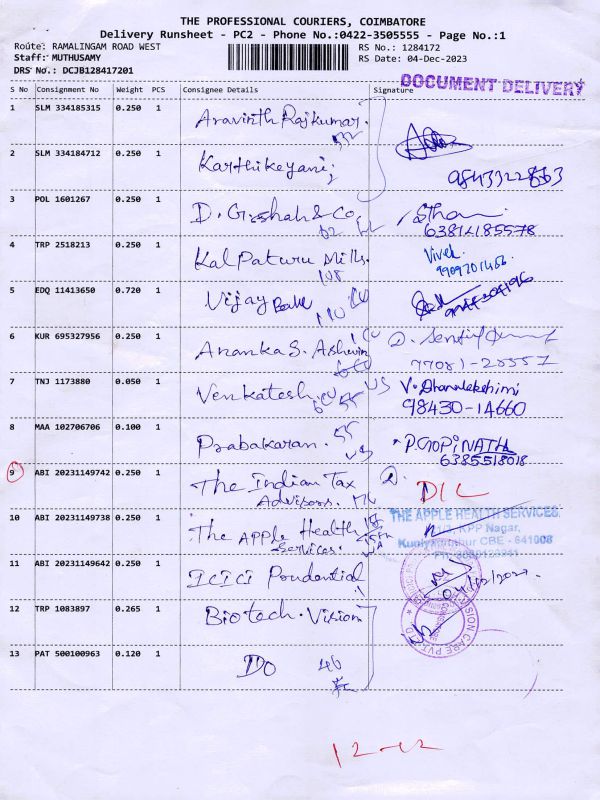 THE PROFESSIONAL COURIERS, COIMBATORE
Delivery Runsheet - PC2 - Phone No.:0422-3505555 - Page No.:1
Route: RAMALINGAM ROAD WEST
RS No.: 1284172
Staff: MUTHUSAMY
RS Date: 04-Dec-2023
DRS No.: DCJB128417201
DOCUMENT DELIVERY
S No Consignment No Weight PCS Consignee Details Signature
1 SLM 334185315 0.250 1 Aravinth Rajkumar.
2 SLM 334184712 0.250 1 Karthikeyani
3 POL 1601267 0.250 1 D. Girishah & Co
63814185578
4 TRP 2518213 0.250 1 Kalpaturu Mills. Vivek
108
5 EDQ 11413650 0.720 1 Vijay
110
6 KUR 695327956 0.250 1 Ananka S. Ashwin
77081-28557
7 TNJ 1173880 0.050 1 Venkatesh. V. Dhanalakshimi
98430-14660
8 MAA 102706706 0.100 1 Prabakaran. 55 P. GOPINATH
6385518018
9 ABI 20231149742 0.250 1 The Indian Tax D/L
Advisors.
10 ABI 20231149738 0.250 1 The Apple Health THE APPLE HEALTH SERVICES
Services. KPP Nagar,
CBE - 641008
11 ABI 20231149642 0.250 1 ICICI Prudential 04/12/2023
12 TRP 1083897 0.265 1 Biotech. Vision
VISION CARE PVT LTD
13 PAT 500100963 0.120 1 Do 46
12-12